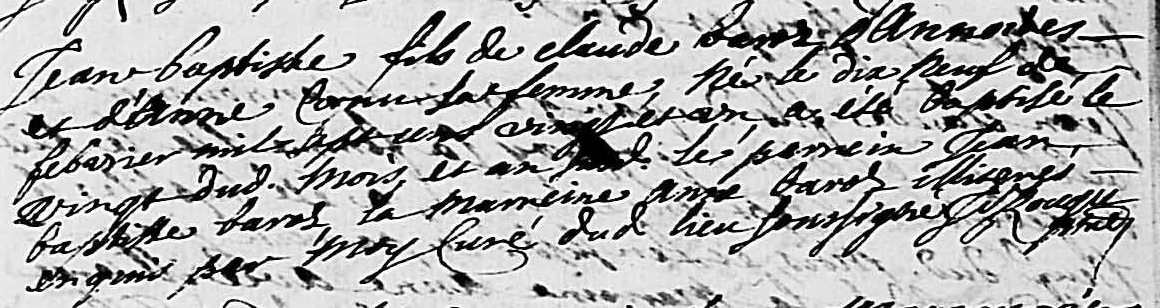 Jean baptiste fils de claude barol d'Annoides
et d'Anne Cornu sa femme, Né le dix neuf de
febvrier mil sept cens vingt et un a été baptisé le
vingt dud. mois, et an sud. le parrein Jean
baptiste barol, la marreine anne barol illiterés
enquis par moy Curé dud. lieu soussigné